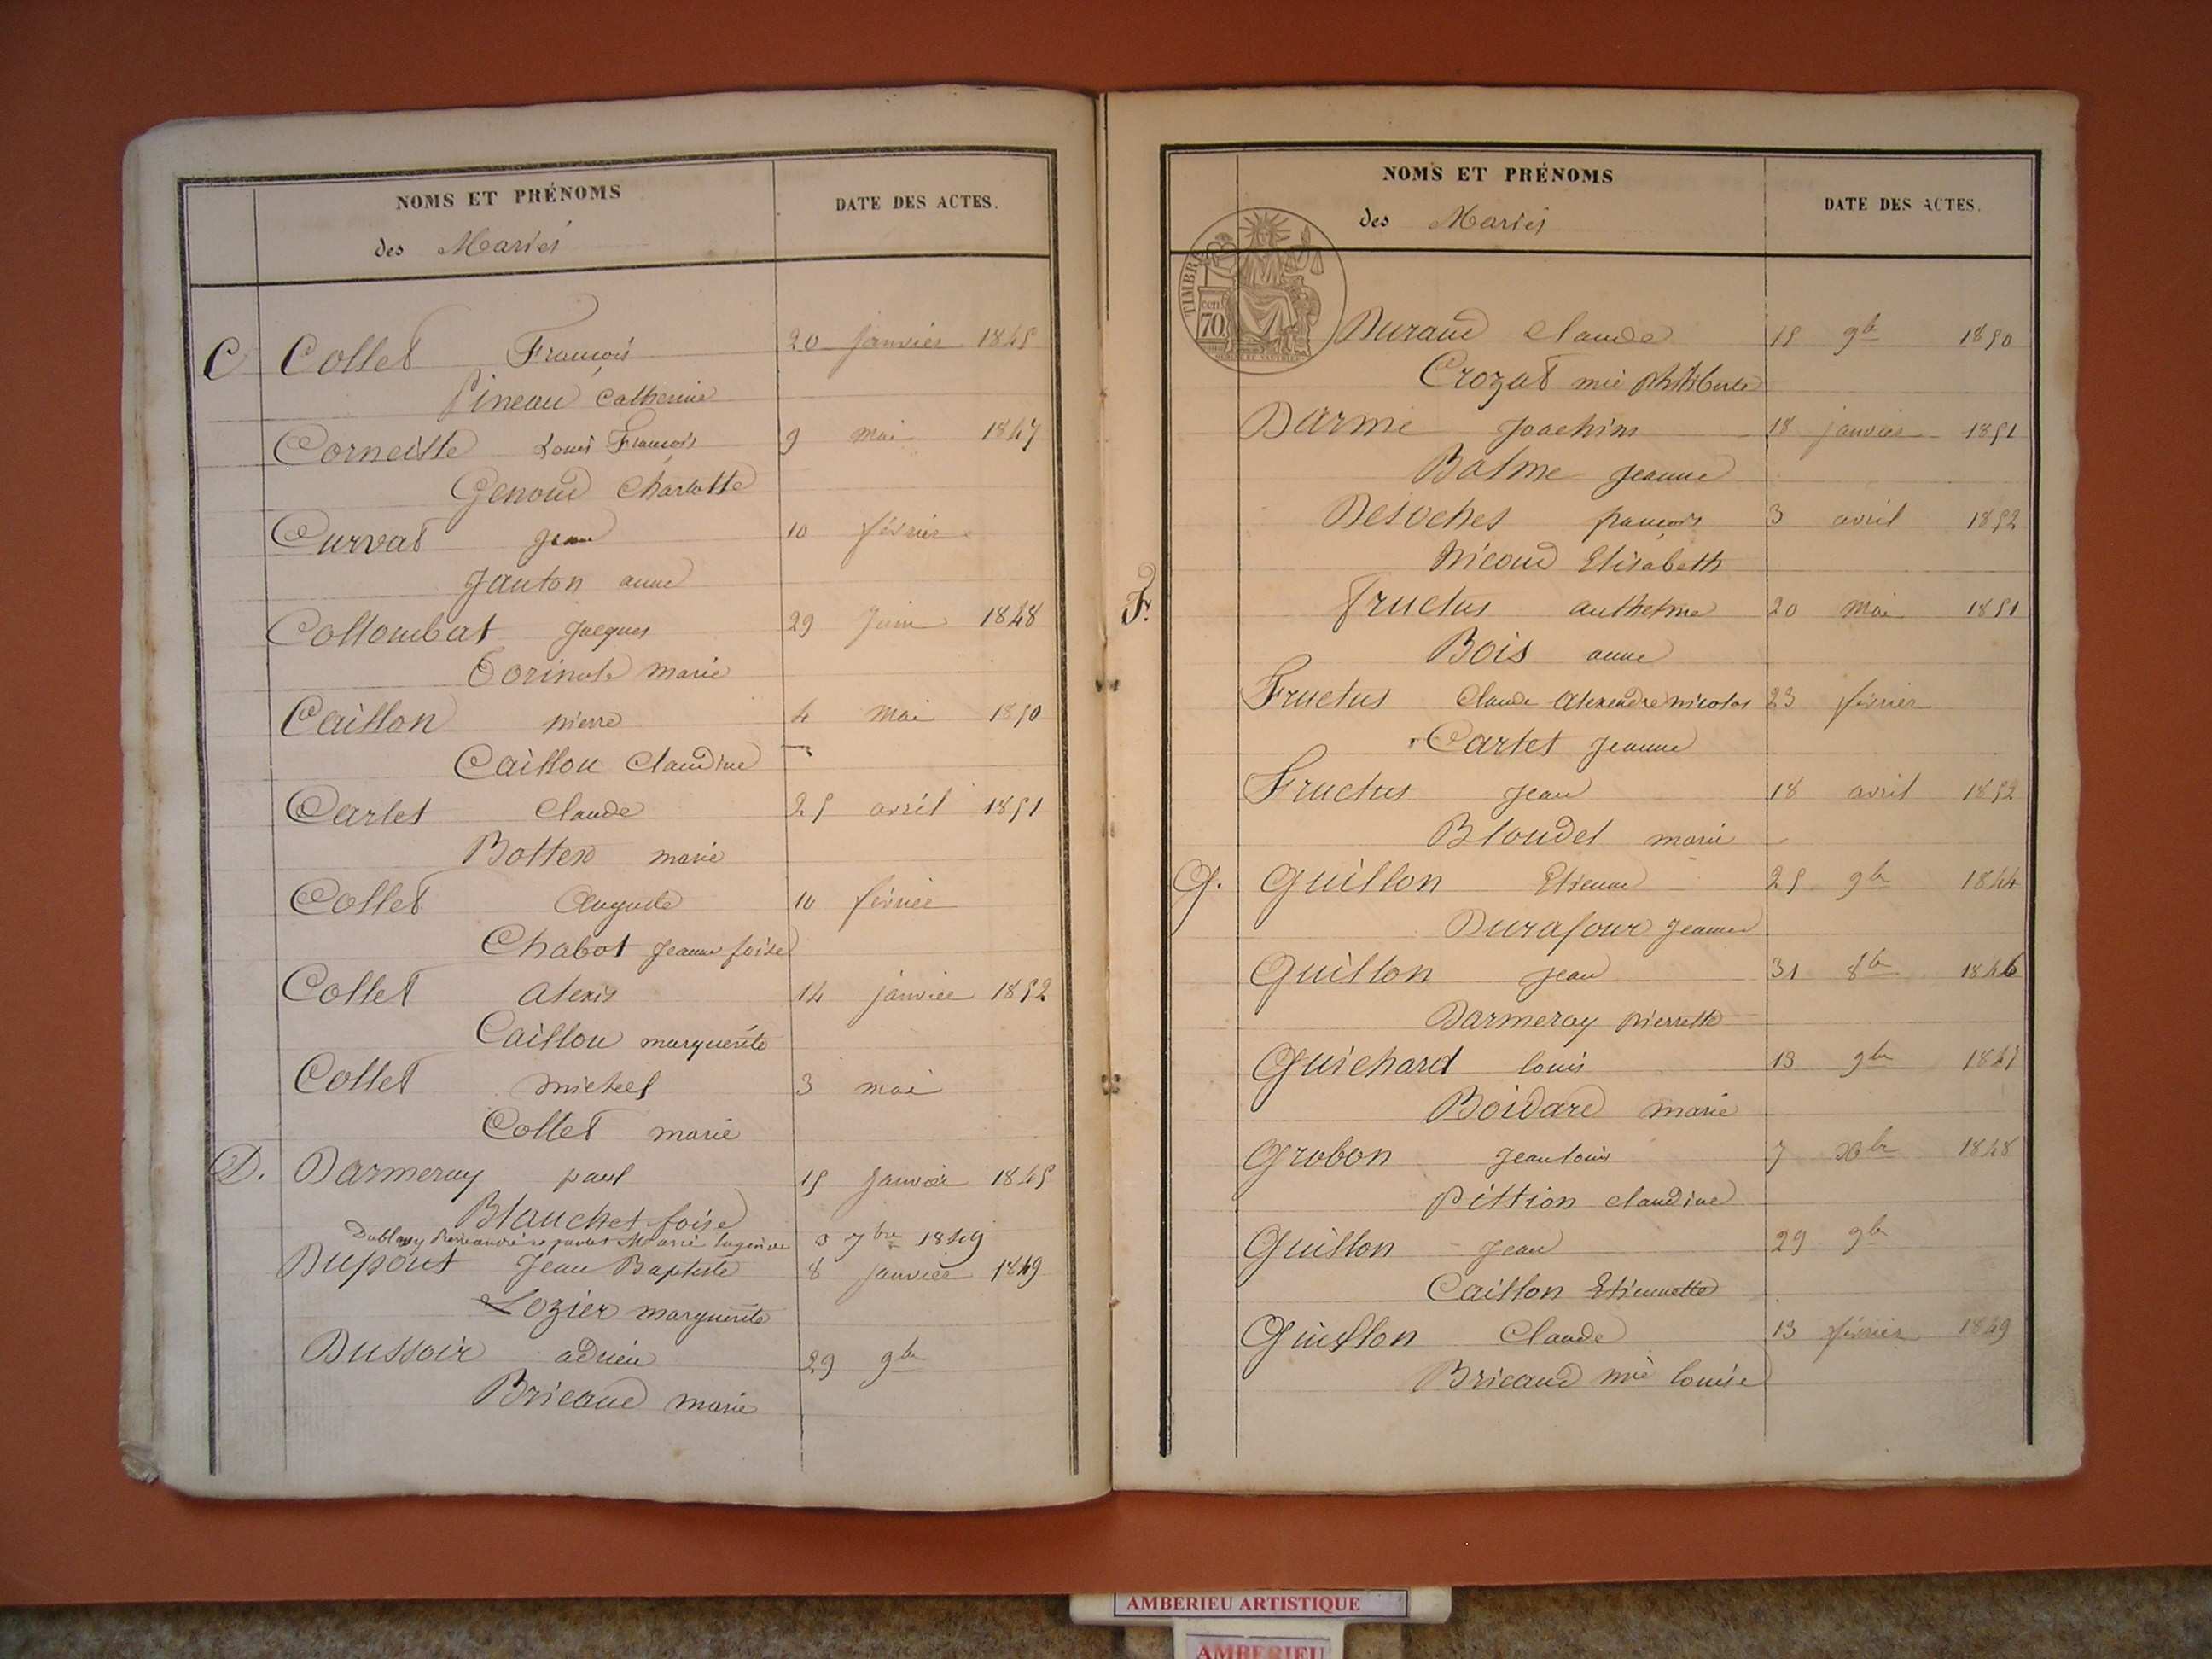 NOMS ET PRÉNOMS
DATE DES ACTES.
des Mariés
C Collet François 20 janvier 1845
Pineau Catherine
Corneille Louis François 9 mai 1847
Genoud Charlotte
Curvat Jean 10 février
Janton anne
Collombat Jacques 29 Juin 1848
marie
Caillon pierre 4 mai 1850
Caillou Claudine
Carlet Claude 25 avril 1851
Bottex marie
Collet Auguste 10 février
Chabot Jeanne foise
Collet alexis 14 janvier 1852
Caillou marguerite
Collet michel 3 mai
Collet marie
D. Darmeray paul 15 Janvier 1845
Blanchet foise
7bre 1849
Dupont Jean Baptiste 8 janvier 1849
Lozier marguerite
Dussoir adrien 29 9bre
Bricaud marie
NOMS ET PRÉNOMS
DATE DES ACTES.
des Mariés
TIMBRE
cent
70
Durand Claude 15 9b 1850
Crozat mie philiberte
Darme Joachim 18 janvier 1851
Balme Jeanne
Desoches françois 3 avril 1852
Nicoud Elisabeth
F. Fructus anthelme 20 mai 1851
Bois anne
Fructus Claude alexendre nicolas 23 février
Cartet Jeanne
Fructus Jean 18 avril 1852
Bloudel marie
G. Guillon Etienne 25 9br 1844
Durafour Jeanne
Guillon Jean 31 8b 1846
Darmeray pierrette
Guichard louis 13 9br 1847
Boidard marie
Grobon Jean louis 7 Xbr 1848
pittion claudine
Guillon Jean 29 9b
Caillon Etiennette
Guillon Claude 13 février 1849
Bricaud mie louise
AMBERIEU ARTISTIQUE
AMBERIEU